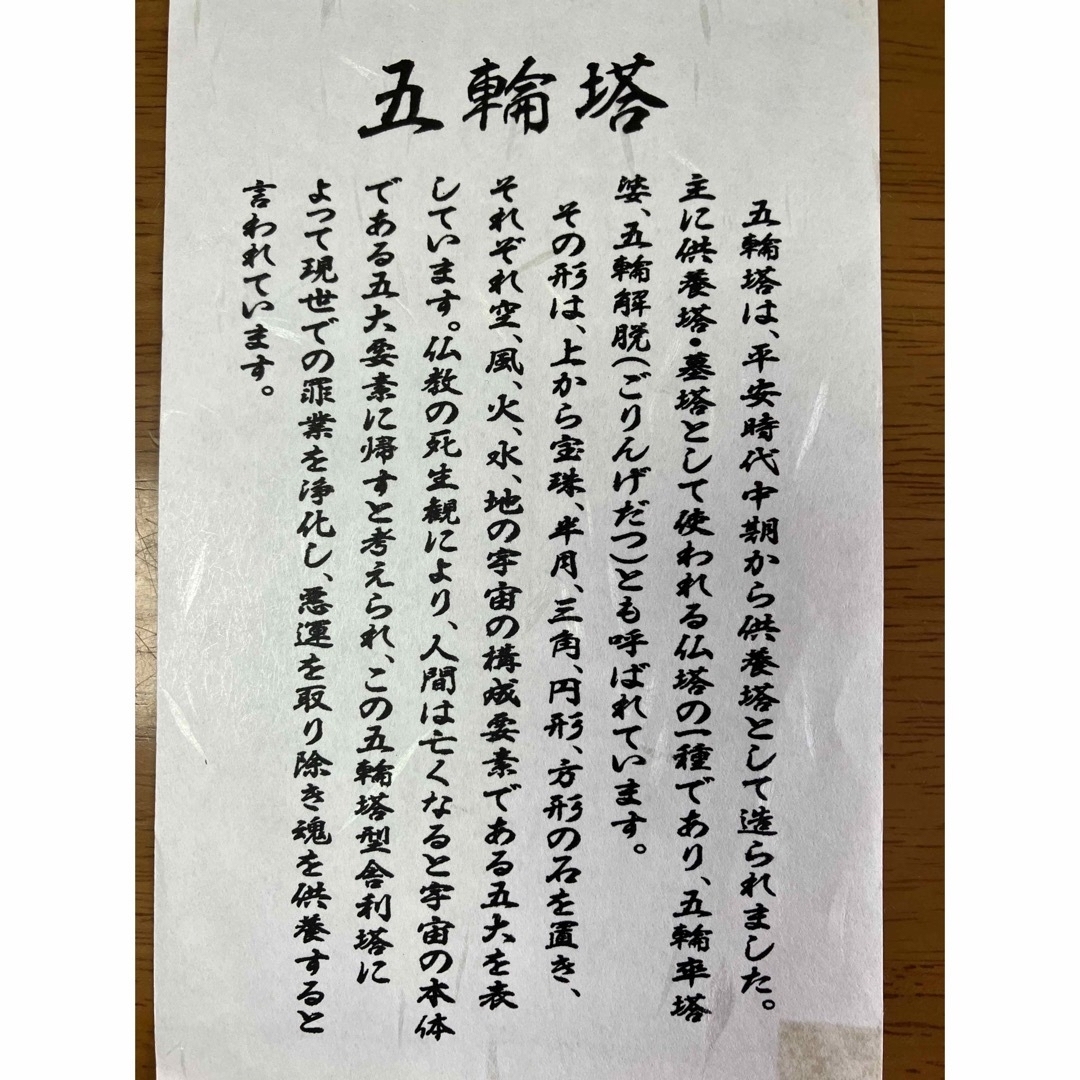 五輪塔
五輪塔は、平安時代中期から供養塔として造られました。
主に供養塔・墓塔として使われる仏塔の一種であり、五輪卒塔
婆、五輪解脱(ごりんげだつ)とも呼ばれています。
その形は、上から宝珠、半月、三角、円形、方形の石を置き、
それぞれ空、風、火、水、地の宇宙の構成要素である五大を表
しています。仏教の死生観により、人間は亡くなると宇宙の本体
である五大要素に帰すと考えられ、この五輪塔型舎利塔に
よって現世での罪業を浄化し、悪運を取り除き魂を供養すると
言われています。